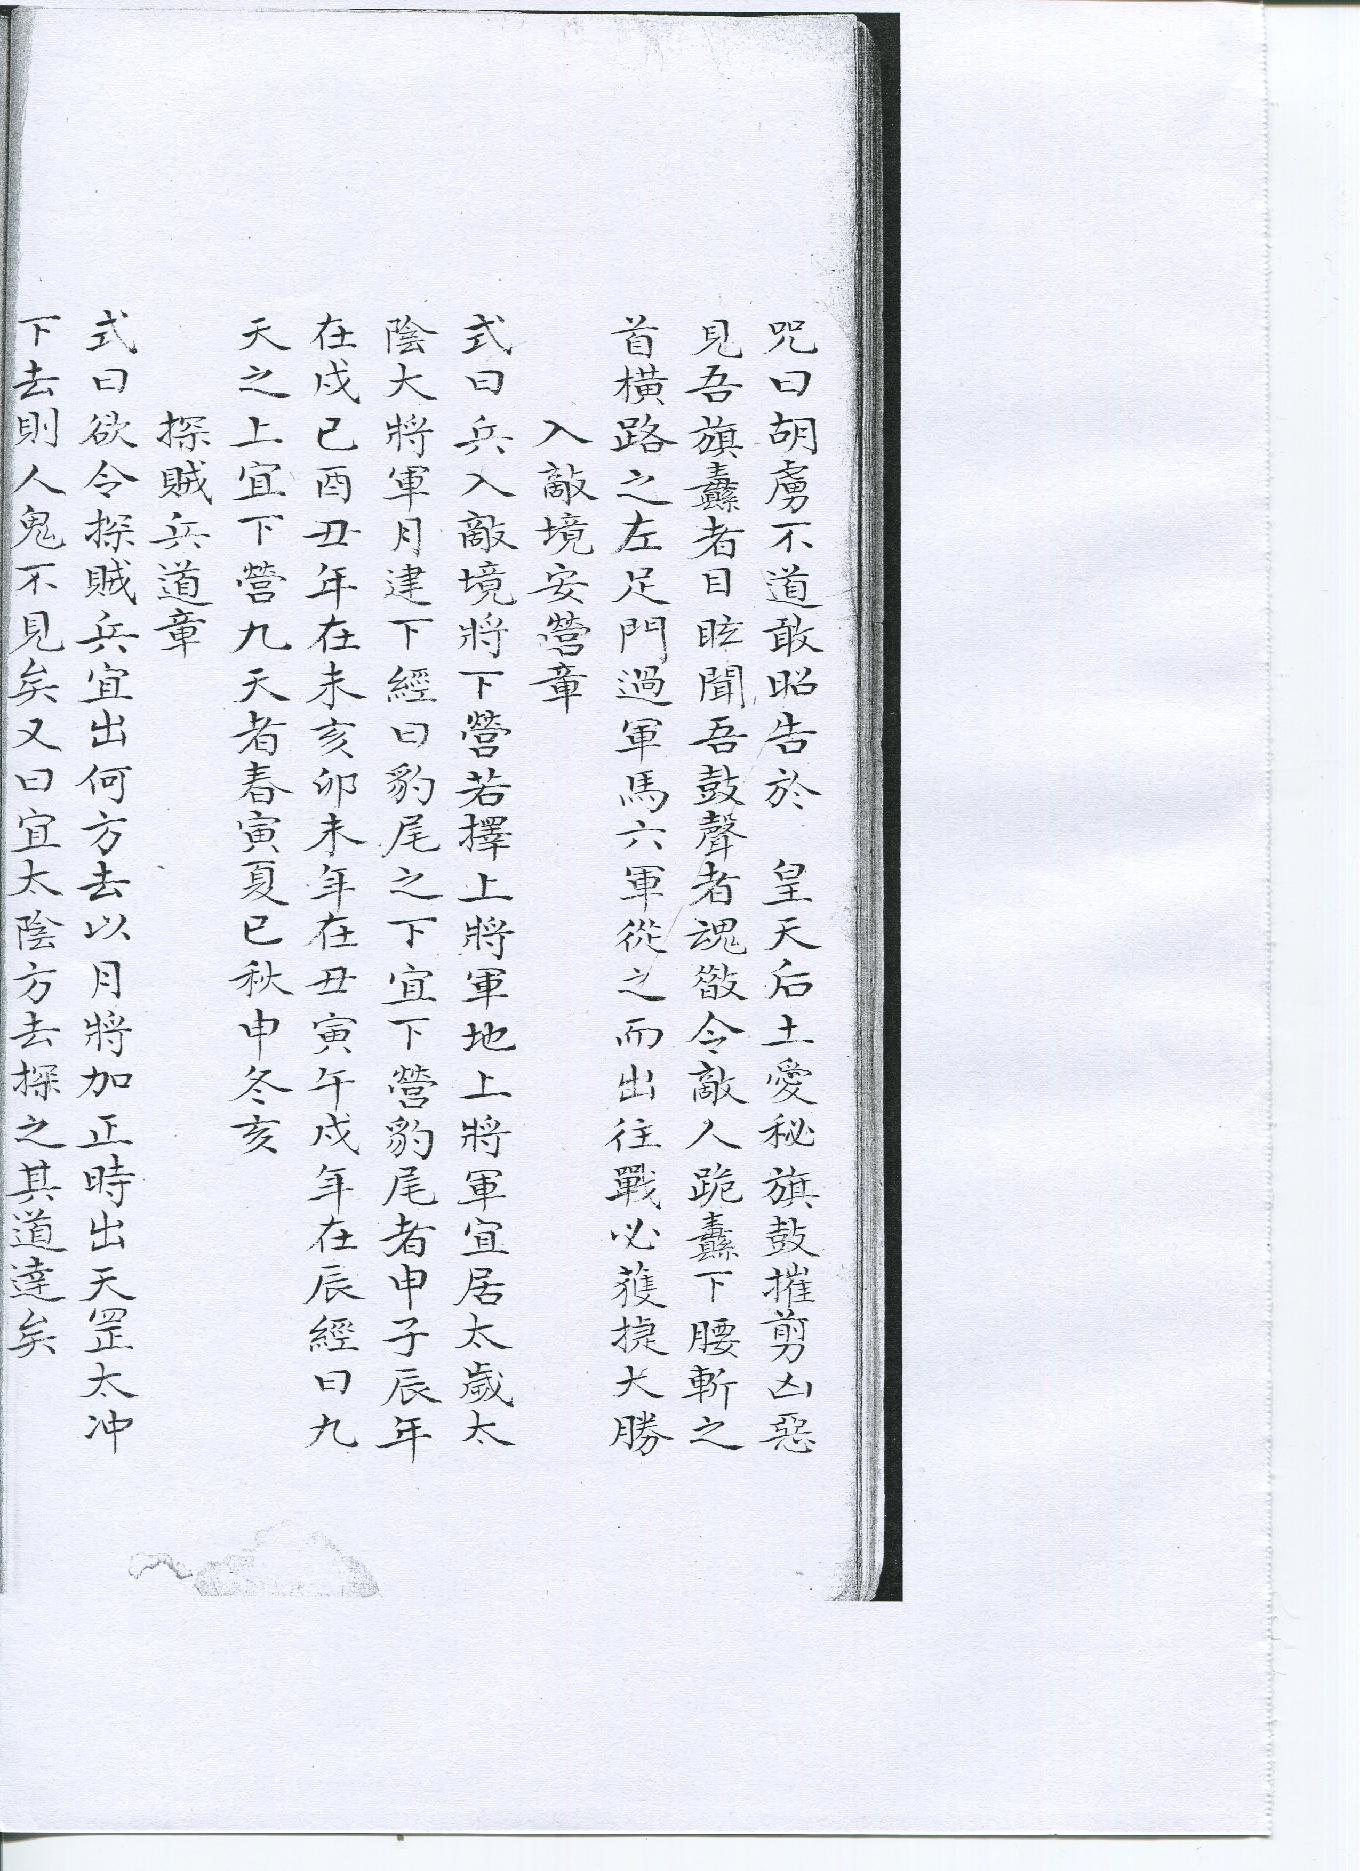 咒曰胡虜不道敢昭告於　皇天后土愛秘旗鼓摧剪凶惡
見吾旗纛者目眩聞吾鼓聲者魂散令敵人跪纛下腰斬之
首橫路之左足門過軍馬六軍從之而出往戰必獲捷大勝
入敵境安營章
式曰兵入敵境將下營若擇上將軍地上將軍宜居太歲太
陰大將軍月建下經曰豹尾之下宜下營豹尾者申子辰年
在戍巳酉丑年在未亥卯未年在丑寅午戍年在辰經曰九
天之上宜下營九天者春寅夏巳秋申冬亥
探賊兵道章
式曰欲令探賊兵宜出何方去以月將加正時出天罡太冲
下去則人鬼不見矣又曰宜太陰方去探之其道達矣